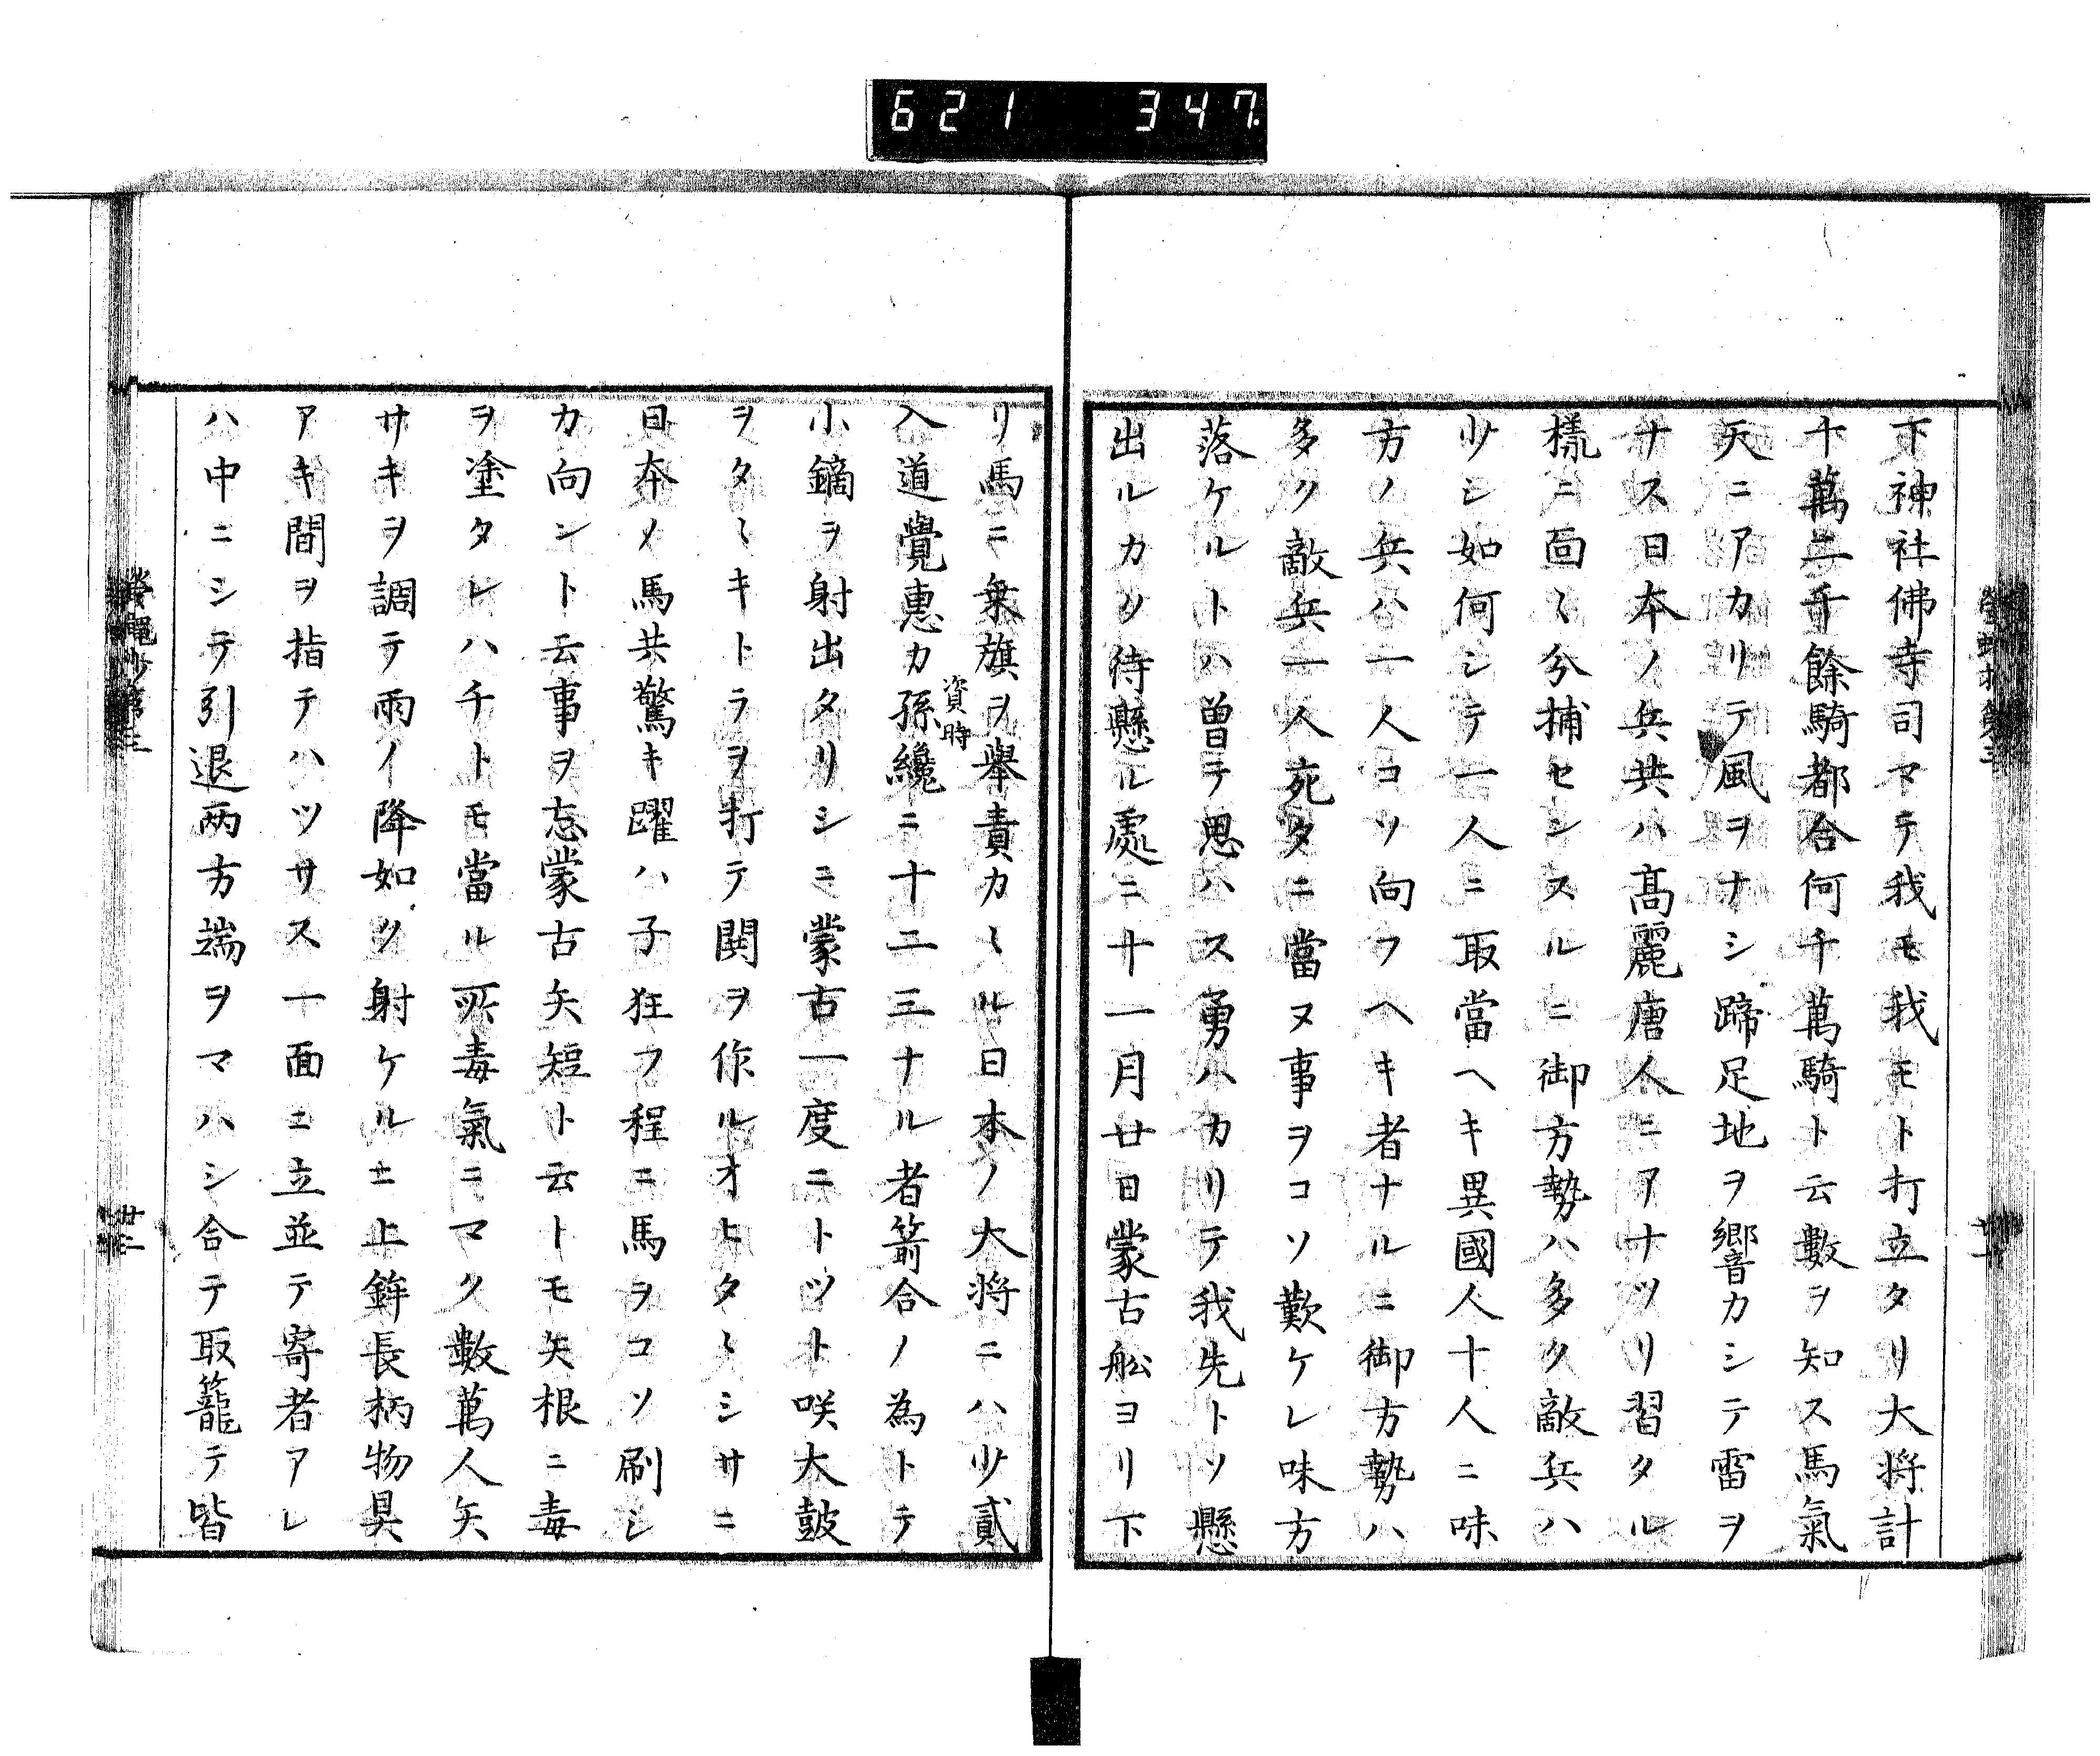 621 347
下神社佛寺司マテ我モ我モト打立タリ大将計
十萬二千餘騎都合何千萬騎ト云數ヲ知ス馬氣
天ニアカリテ風ヲナシ蹄足地ヲ響カシテ雷ヲ
ナス日本ノ兵共ハ髙麗唐人ニアナツリ習タル
樣ニ面〻分捕センスルニ御方勢ハ多ク敵兵ハ
少シ如何シテ一人ニ取當ヘキ異國人十人ニ味
方ノ兵ハ一人コソ向フヘキ者ナルニ御方勢ハ
多ク敵兵一人宛タニ當ヌ事ヲコソ歎ケレ味方
落ケルトハ曽テ思ハス勇ハカリテ我先トソ懸
出ルカノ待懸ル處ニ十一月廿日蒙古舩ヨリ下
リ馬ニ乗旗ヲ舉責カ〻ル日本ノ大将ニハ少貳
入道覺惠カ孫纔ニ十二三ナル者箭合ノ為トテ
資時
小鏑ヲ射出タリシニ蒙古一度ニトツト咲大鼓
ヲタ〻キトラヲ打テ閧ヲ作ルオヒタ〻シサニ
日本ノ馬共驚キ躍ハ子狂フ程ニ馬ヲコソ刷シ
カ向ント云事ヲ忘蒙古矢短ト云トモ矢根ニ毒
ヲ塗タレハ千トモ當ル所毒氣ニマク數萬人矢
サキヲ調テ雨ノ降如ク射ケルニ上鉾長柄物具
アキ間ヲ指テハツサス一面ニ立並テ寄者アレ
ハ中ニシテ引退両方端ヲマハシ合テ取籠テ皆